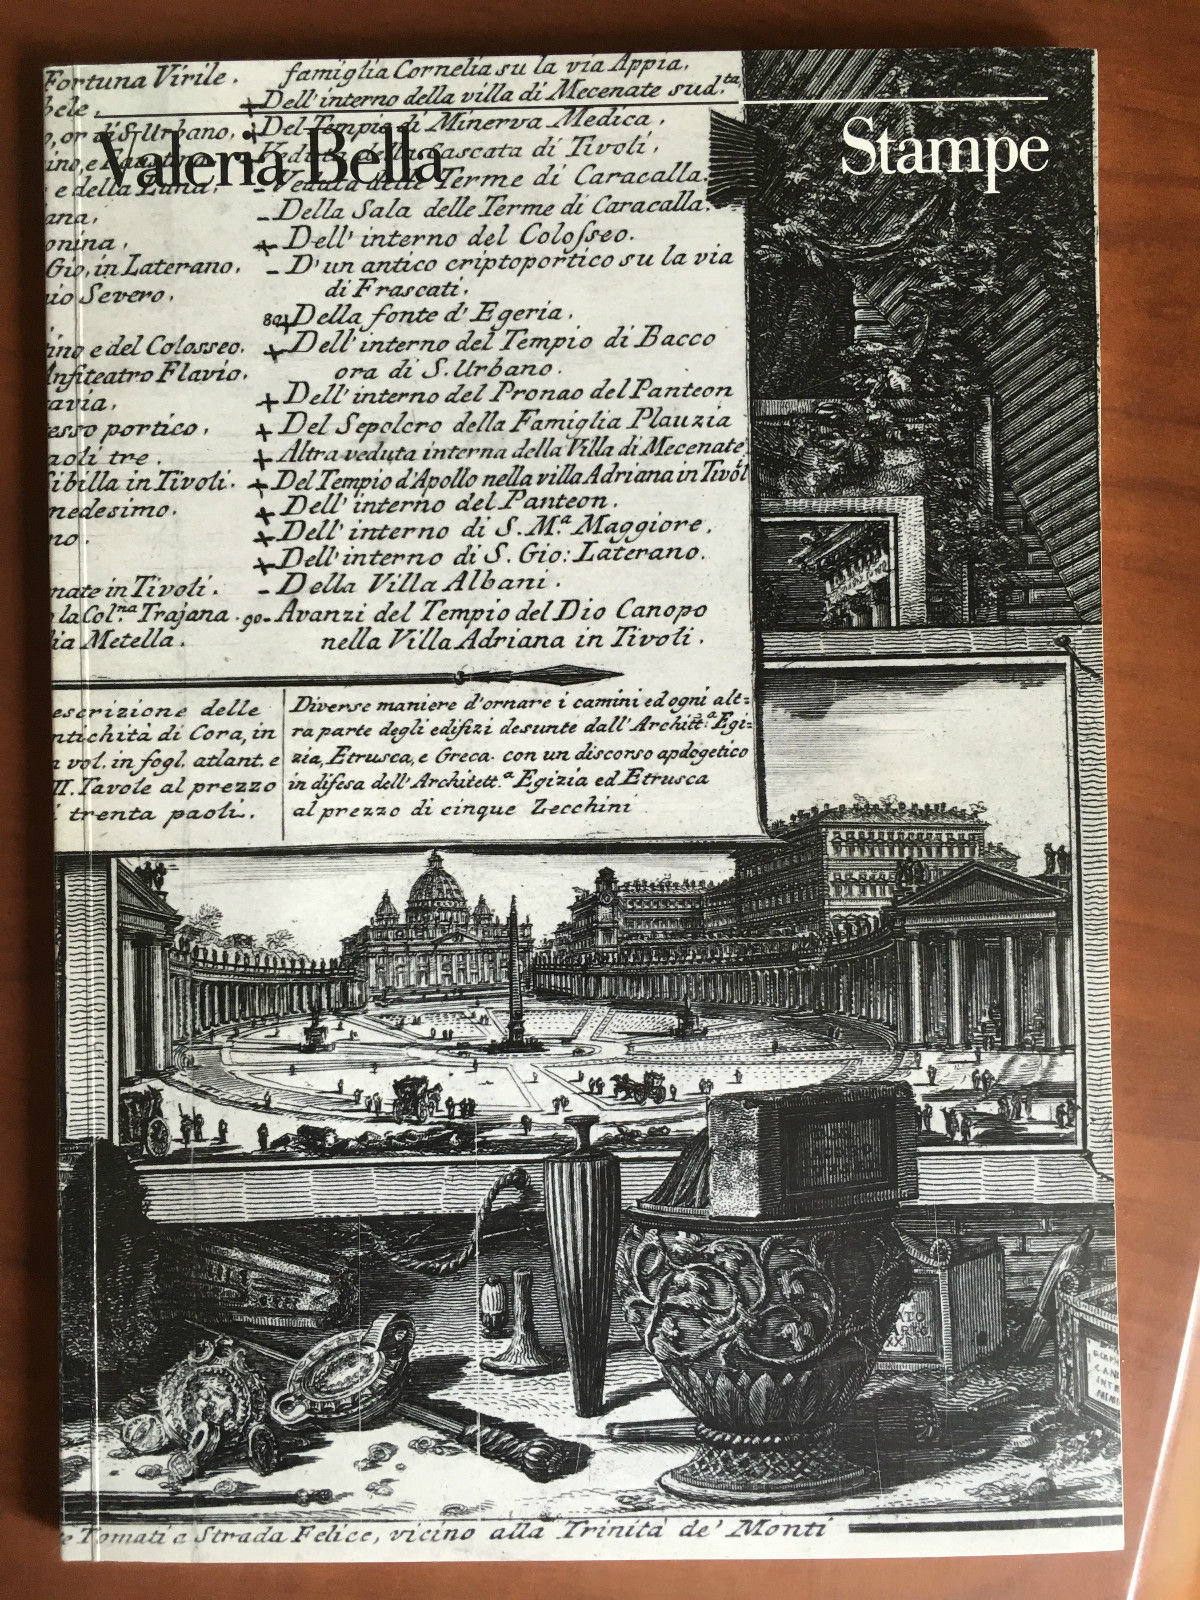 Valeria Bella
Stampe
Fortuna Virile.
bele.
o, or di S. Urbano.
e della Luna.
ana.
onina.
Gio, in Laterano.
nio Severo.
tino e del Colosseo.
Anfiteatro Flavio.
tavia.
esso portico.
paoli tre.
Sibilla in Tivoli.
medesimo.
no.
nate in Tivoli.
la Col.na Trajana.
lia Metella.
famiglia Cornelia su la via Appia.
Dell'interno della villa di Mecenate sud.ta
Del Tempio di Minerva Medica.
Veduta della Cascata di Tivoli.
Veduta delle Terme di Caracalla.
Della Sala delle Terme di Caracalla.
Dell' interno del Coloſseo.
D'un antico criptoportico su la via
di Frascati.
Della fonte d' Egeria.
Dell'interno del Tempio di Bacco
ora di S. Urbano.
Dell'interno del Pronao del Panteon
Del Sepolcro della Famiglia Plauzia
Altra veduta interna della Villa di Mecenate
Del Tempio d'Apollo nella villa Adriana in Tivoli
Dell' interno del Panteon.
Dell' interno di S. M.a Maggiore.
Dell'interno di S. Gio: Laterano.
Della Villa Albani.
90- Avanzi del Tempio del Dio Canopo
nella Villa Adriana in Tivoli.
escrizione delle
ntichità di Cora, in
n vol. in fogl. atlant. e
II. Tavole al prezzo
i trenta paoli.
Diverse maniere d'ornare i camini ed ogni alt=
ra parte degli edifizi desunte dall' Archit.a Egi-
zia, Etrusca, e Greca. con un discorso apologetico
in difesa dell' Architett.a Egizia ed Etrusca
al prezzo di cinque Zecchini
Tomati a Strada Felice, vicino alla Trinità de' Monti